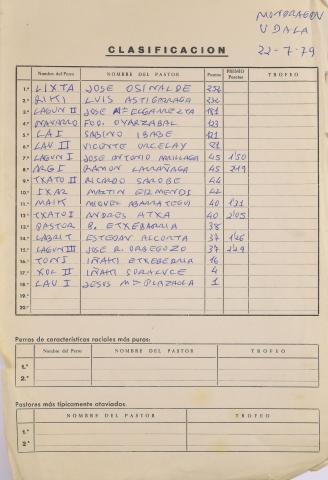 MONDRAGON
UDALA
22-7-79
CLASIFICACION
Nombre del Perro NOMBRE DEL PASTOR Puntos PREMIO Pesetas TROFEO
1.º LIXTA JOSE OSINALDE 252
2.º BIKI LUIS ASTIGARRAGA 232
3.º LAGUN II JOSE Mª ELGARRESTA 181
4.º NAVARRO FCO. OYARZABAL 123
5.º LAI SABINO IBABE 121
6.º LAU III VICENTE URCELAY 81
7.º LAGUN I JOSE ANTONIO ARRILLAGA 45 1'50
8.º ARGI RAMON LARRAÑAGA 45 2'19
9.º TXATO II RICARDO SAROBE 44
10.º IXAR MARTIN EIZMENDI 42
11.º MAIK MIGUEL ABARRATEGUI 40 1'31
12.º TXATO I ANDRES ATXA 40 2'05
13.º PASTOR B. ETXEBARRIA 38
14.º LABRIT ESTEBAN ALCORTA 37 1'46
15.º LAGUN III JOSE R. ORBEGOZO 37 2'49
16.º TONI IÑAKI ETXEBERRIA 16
17.º XOL II IÑAKI SORALUCE 4
18.º LAU I JESUS Mª PLAZAOLA 1
19.º
20.º
Perros de características raciales más puras:
Nombre del Perro NOMBRE DEL PASTOR TROFEO
1.º
2.º
Pastores más típicamente ataviados.
NOMBRE DEL PASTOR TROFEO
1.º
2.º